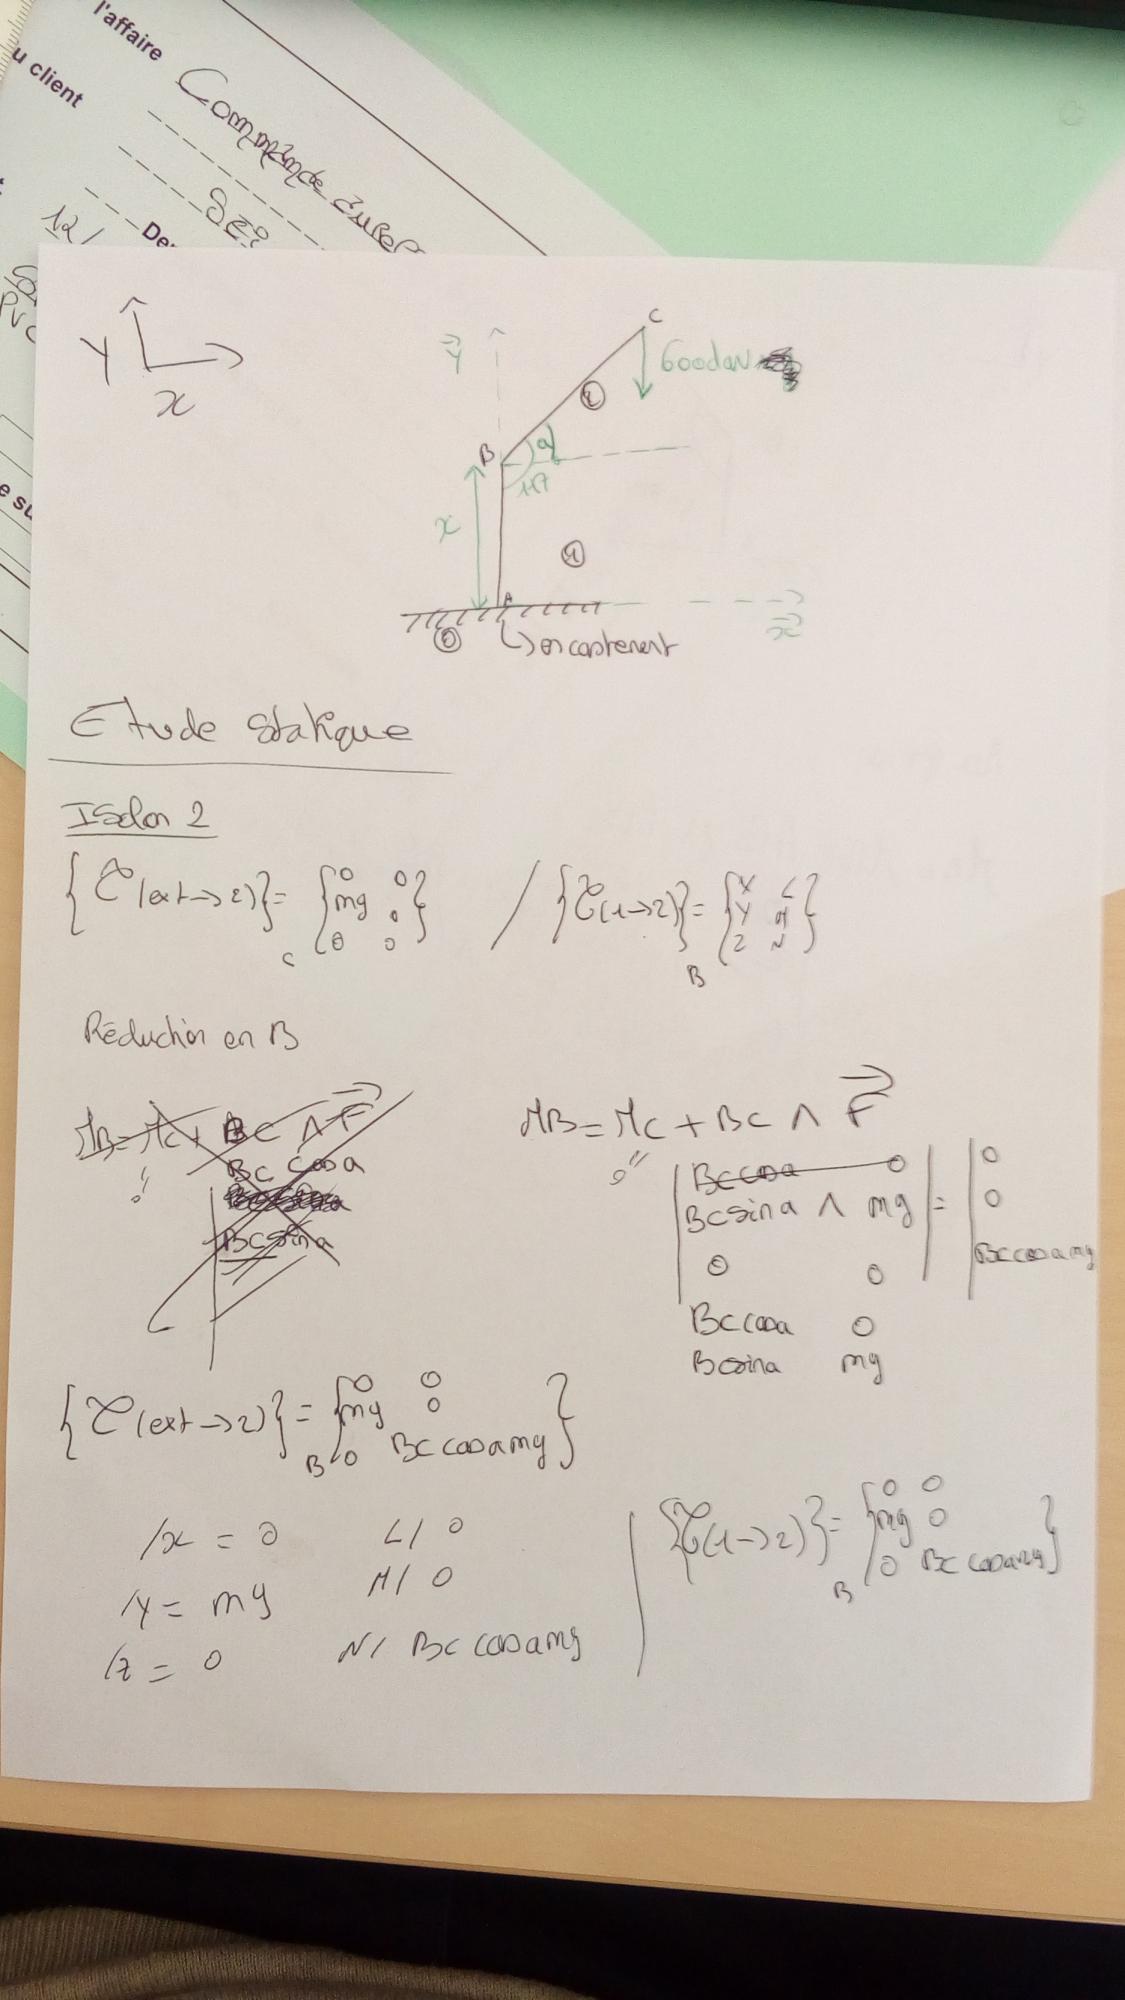 l'affaire
u client
Commande
SEi
12/
De
e su
Y
x
C
600daN
y
2
B
a
x
1
A
x
0
encastrement
Etude statique
Isoler 2
{T(ext→2)}= {0 0
mg 0
0 0}
C
/ {T(1→2)}= {X L
Y M
Z N}
B
Réduction en B
MB=Mc+ BC ∧ F
0"
BC cosa
BC sina
MB=Mc + BC ∧ F
0"
BC cosa 0 0
BC sina ∧ mg = 0
0 0 BC cosa mg
BC cosa 0
BC sina mg
{T(ext→2)}= {0 0
mg 0
0 BC cosa mg}
B
/x = 0 L/ 0
/Y = mg M/ 0
/z = 0 N/ BC cosa mg
{T(1→2)}= {0 0
mg 0
0 BC cosa mg}
B